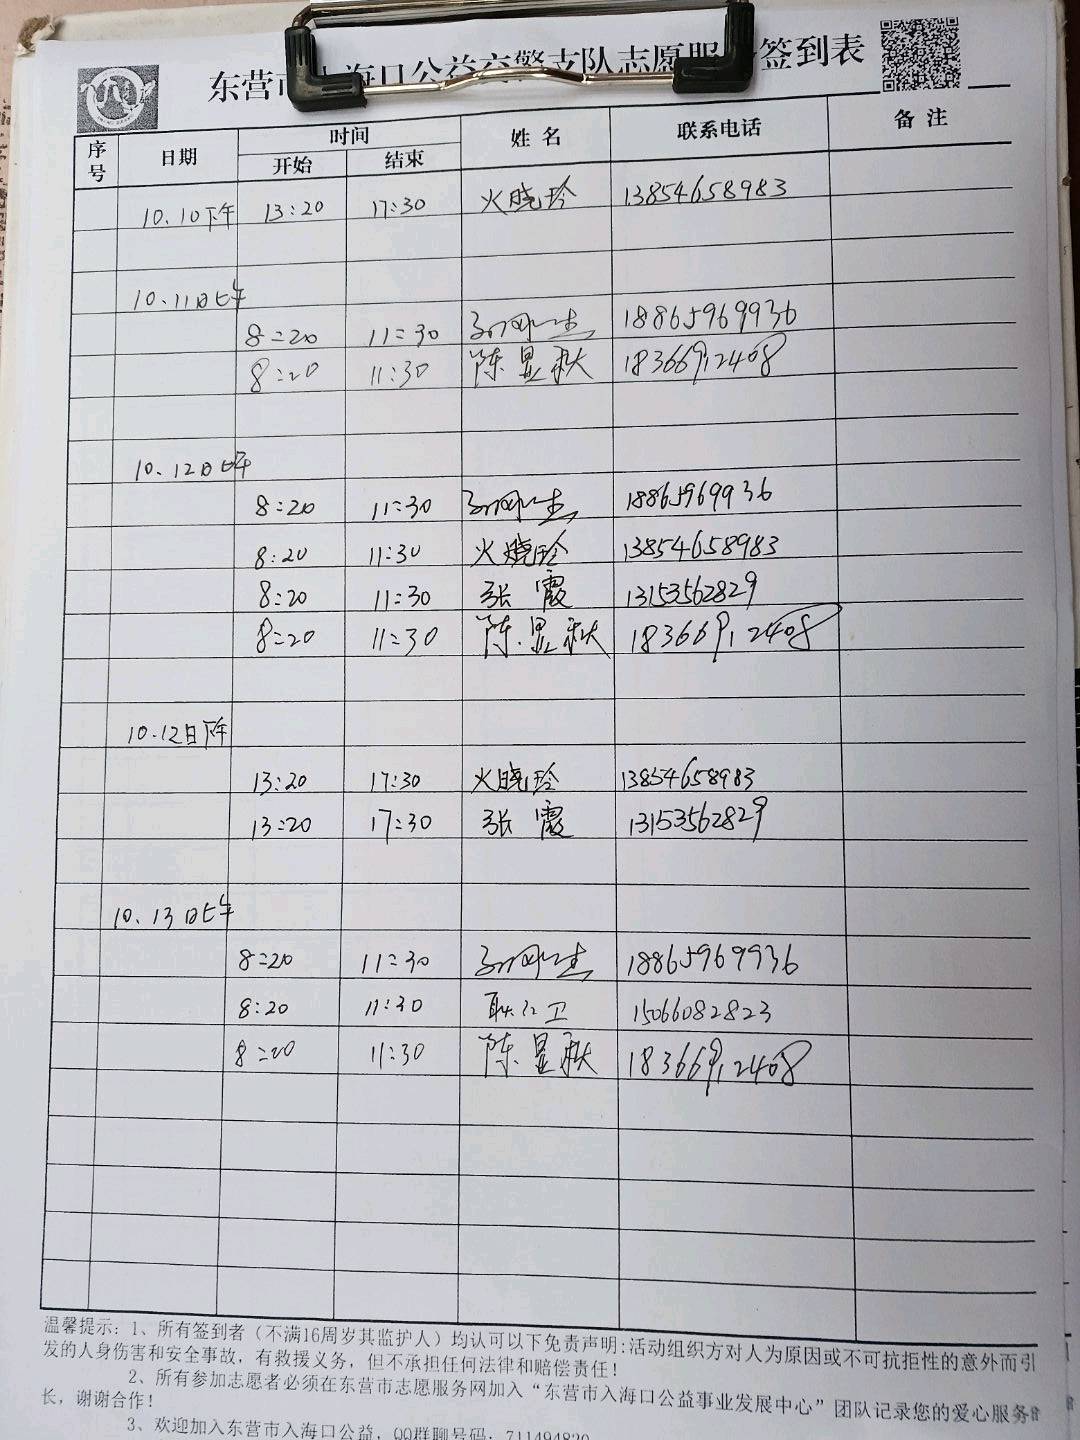 东营市入海口公益交警支队志愿服务签到表
序号 日期 时间 姓名 联系电话 备注
开始 结束
10.10下午 13:20 17:30 火晓玲 13854658983
10.11日上午
8:20 11:30 18865969936
8:20 11:30 陈显秋 18366912408
10.12日上午
8:20 11:30 18865969936
8:20 11:30 火晓玲 13854658983
8:20 11:30 张霞 13153562829
8:20 11:30 陈显秋 18366912408
10.12日下午
13:20 17:30 火晓玲 13854658983
13:20 17:30 张霞 13153562829
10.13日上午
8:20 11:30 18865969936
8:20 11:30 耿红卫 15066082823
8:20 11:30 陈显秋 18366912408
温馨提示：1、所有签到者（不满16周岁其监护人）均认可以下免责声明:活动组织方对人为原因或不可抗拒性的意外而引
发的人身伤害和安全事故，有救援义务，但不承担任何法律和赔偿责任！
2、所有参加志愿者必须在东营市志愿服务网加入“东营市入海口公益事业发展中心”团队记录您的爱心服务
长，谢谢合作！
3、欢迎加入东营市入海口公益，QQ群聊号码：711494820